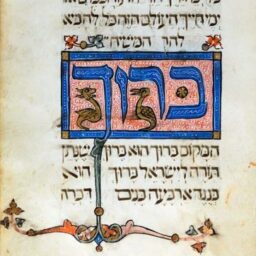 ימי חייך העולם הזה כל להביא
המשיח
ברוך
המקום ברוך הוא ברוך שנתן
תורה לישראל ברוך הוא
כנגד ארבעה בנים דברה